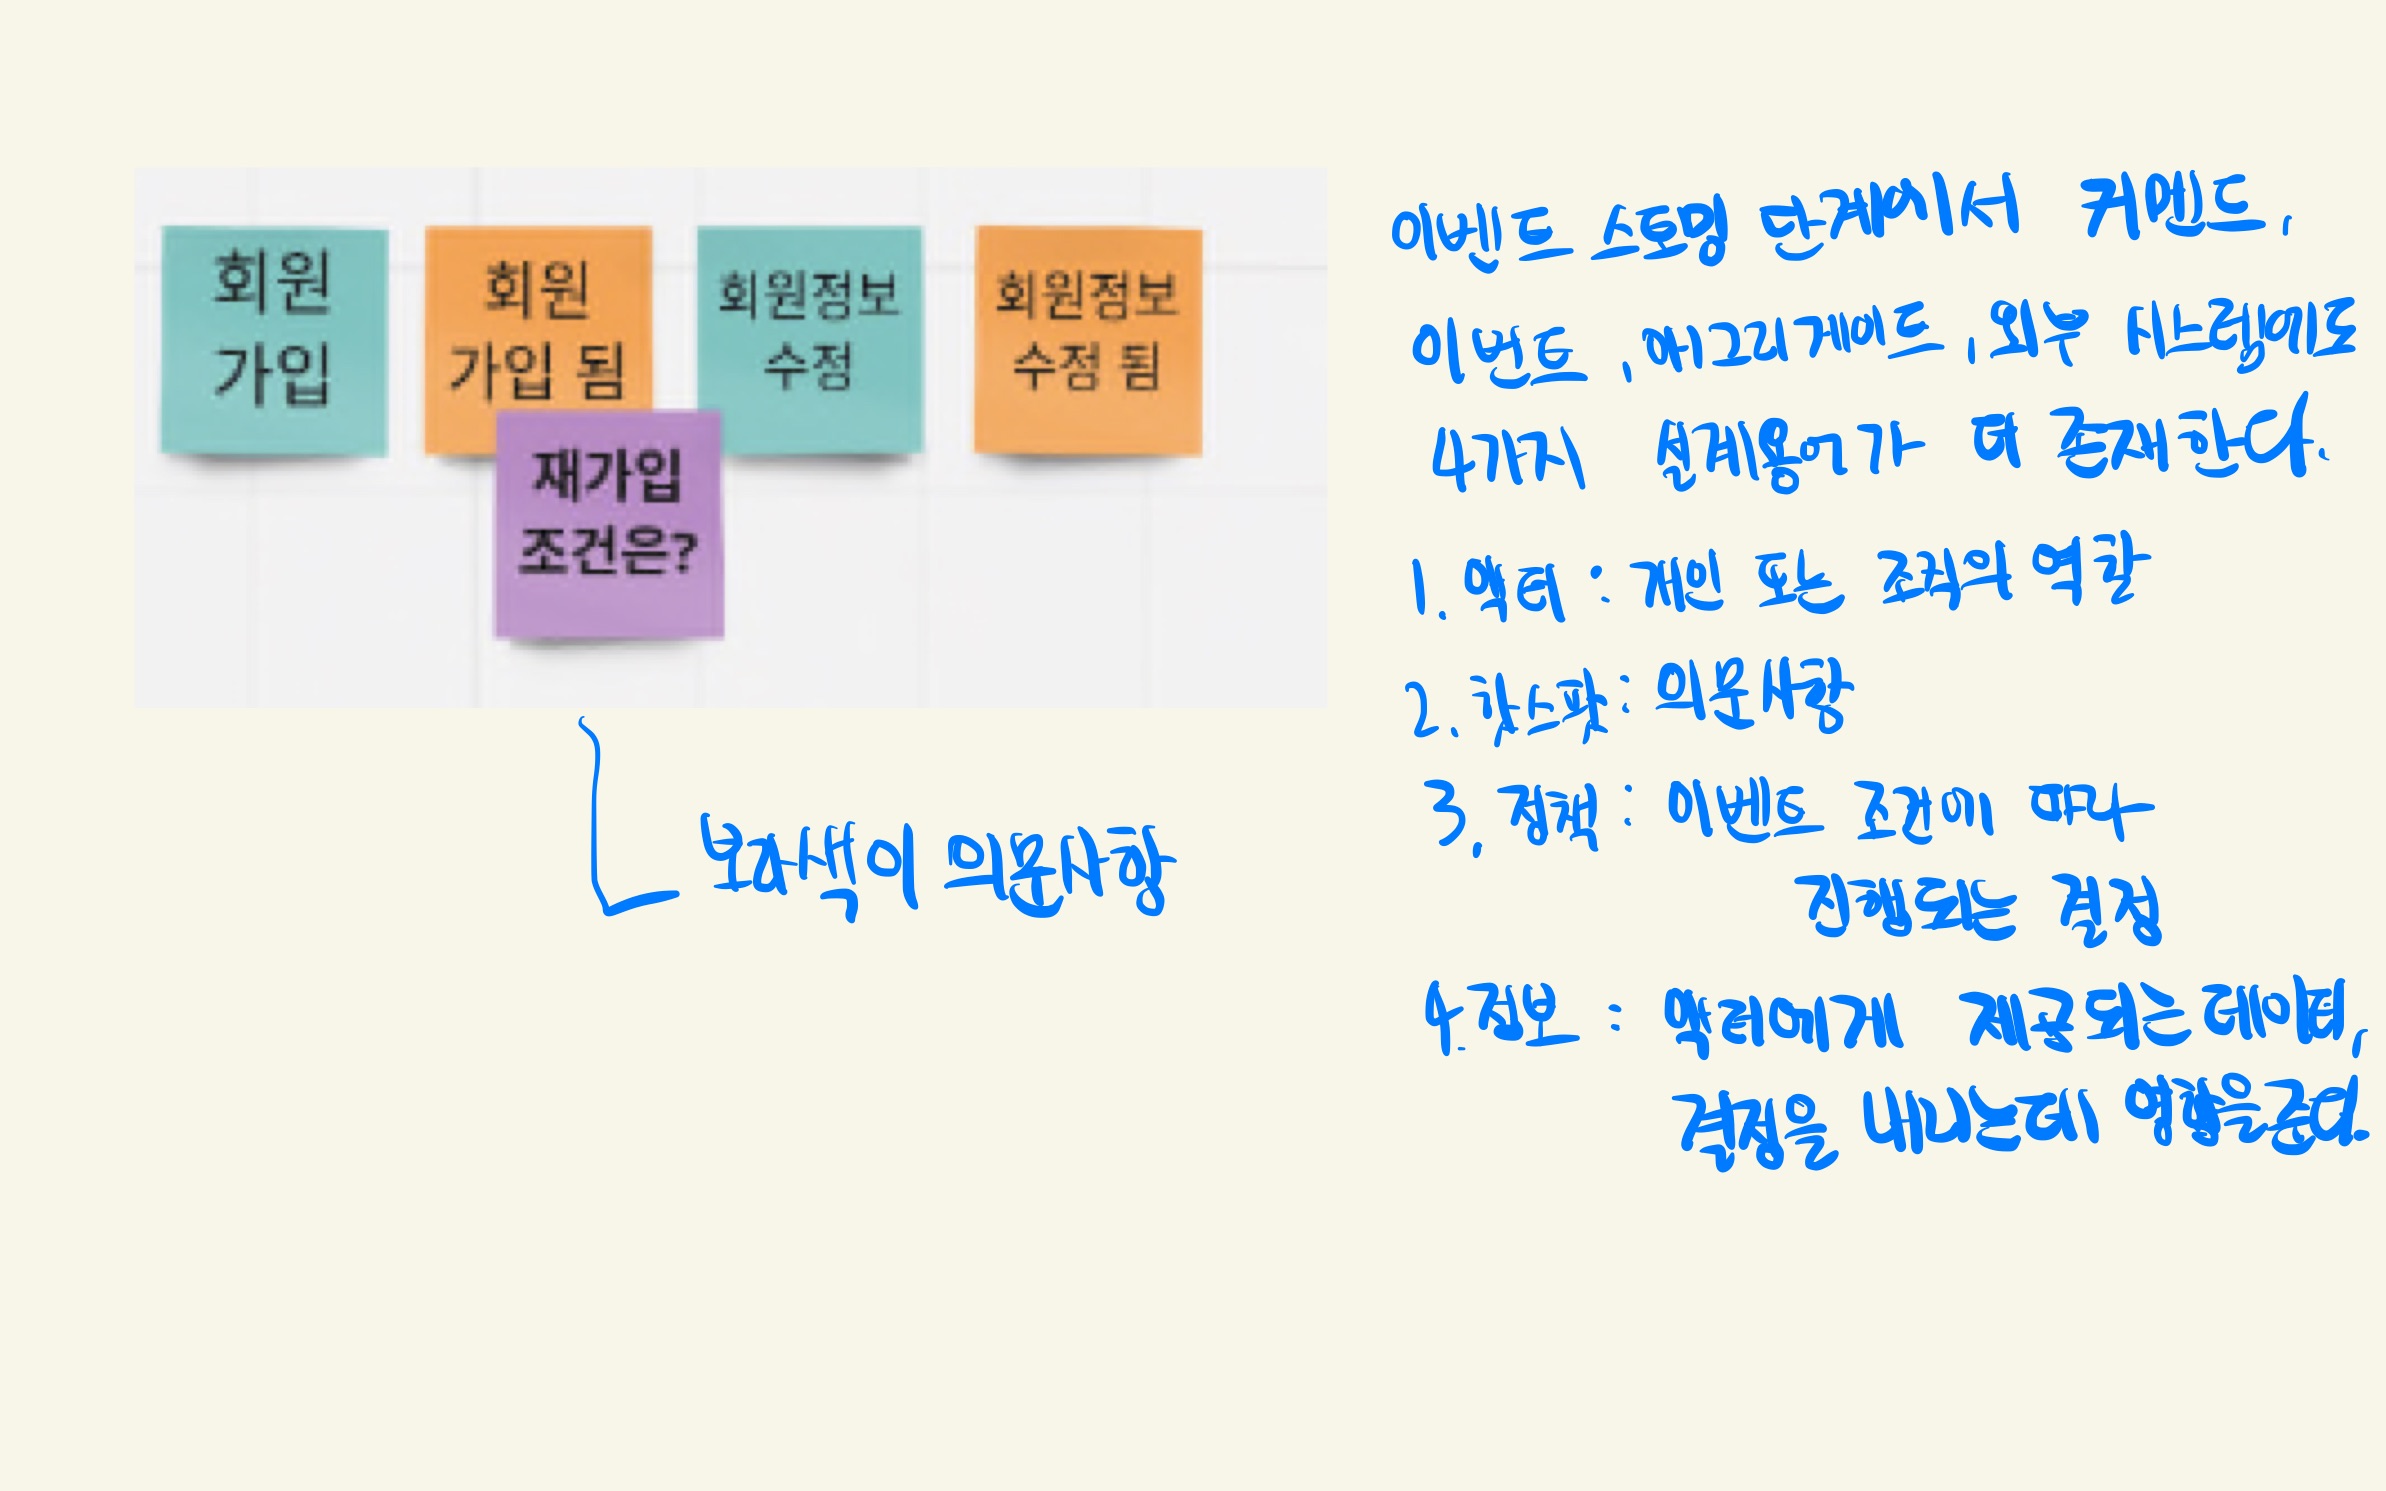 회원
가입
회원
가입 됨
회원정보
수정
회원정보
수정 됨
재가입
조건은?
보라색이 의문사항
이벤트 스토밍 단계에서 커멘드,
이벤트, 애그리게이트, 외부 시스템에도
4가지 설계용어가 더 존재한다.
1. 액터 : 개인 또는 조직의 역할
2. 핫스팟 : 의문사항
3. 정책 : 이벤트 조건에 따라
진행되는 결정
4. 정보 : 액터에게 제공되는 데이터,
결정을 내리는데 영향을 준다.